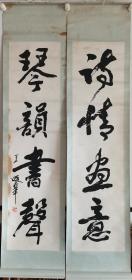 詩情畫意
琴韻書聲